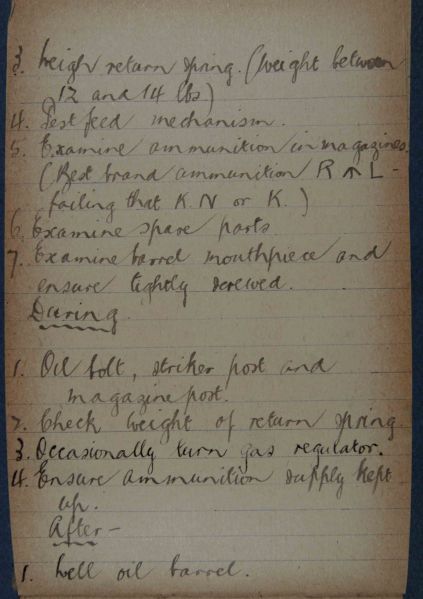 3. Weigh return spring. (Weight between
12 and 14 lbs)
4. Test feed mechanism.
5. Examine ammunition in magazines.
(Best brand ammunition R ↑ L -
failing that K.N or K.)
6. Examine spare parts.
7. Examine barrel mouthpiece and
ensure tightly screwed.
During.
1. Oil bolt, striker post and
magazine post.
2. Check weight of return spring
3. Occasionally turn gas regulator.
4. Ensure ammunition supply kept
up.
After -
1. Well oil barrel.